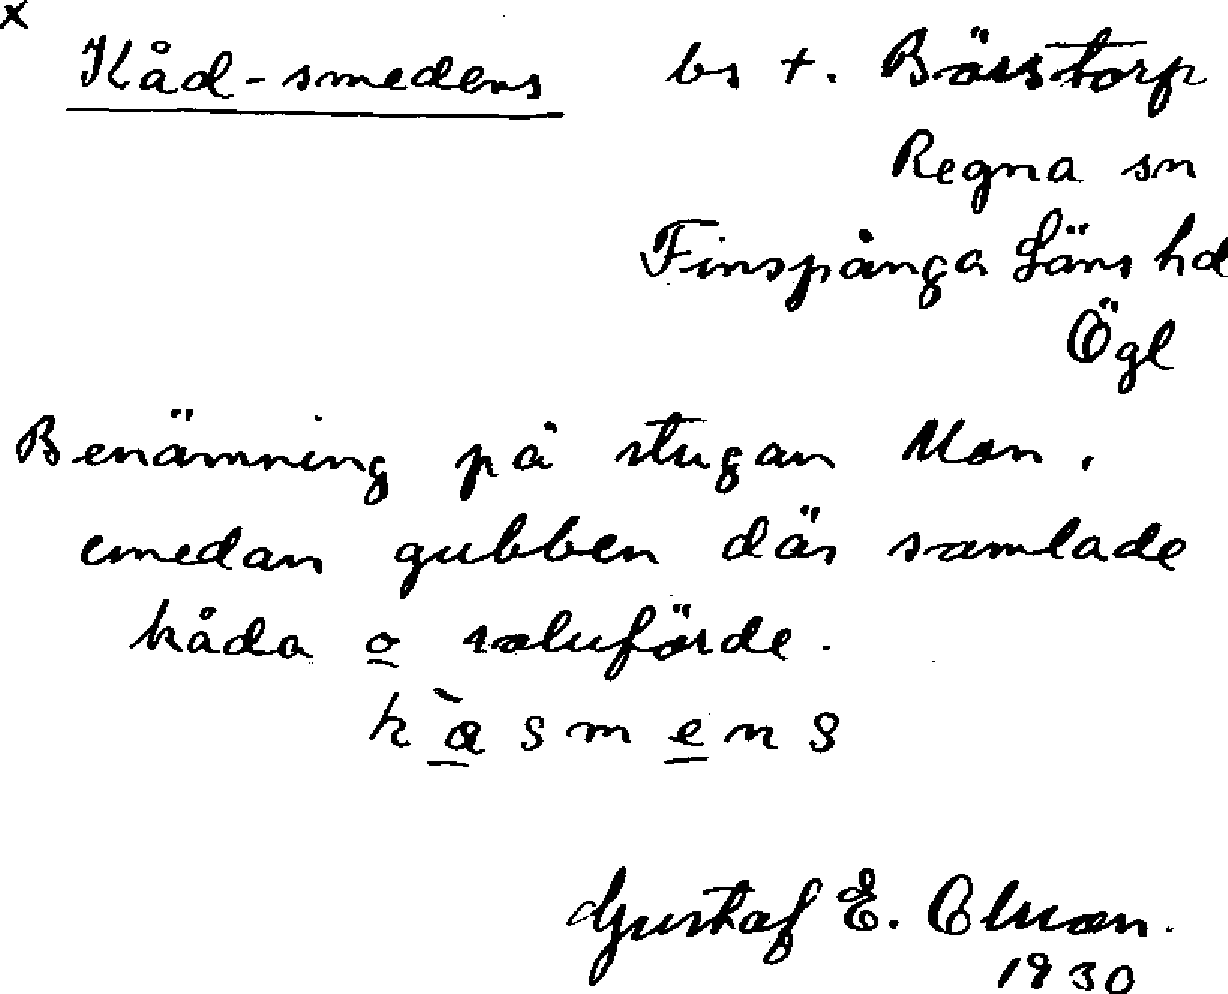 x
Kåd-smedens bs t. Börstorp
Regna sn
Finspånga Läns hd
Ögl
Benämning på stugan Mon,
emedan gubben där samlade
kåda o saluförde.
k ὰ s m e n s
Gustaf E.
1930